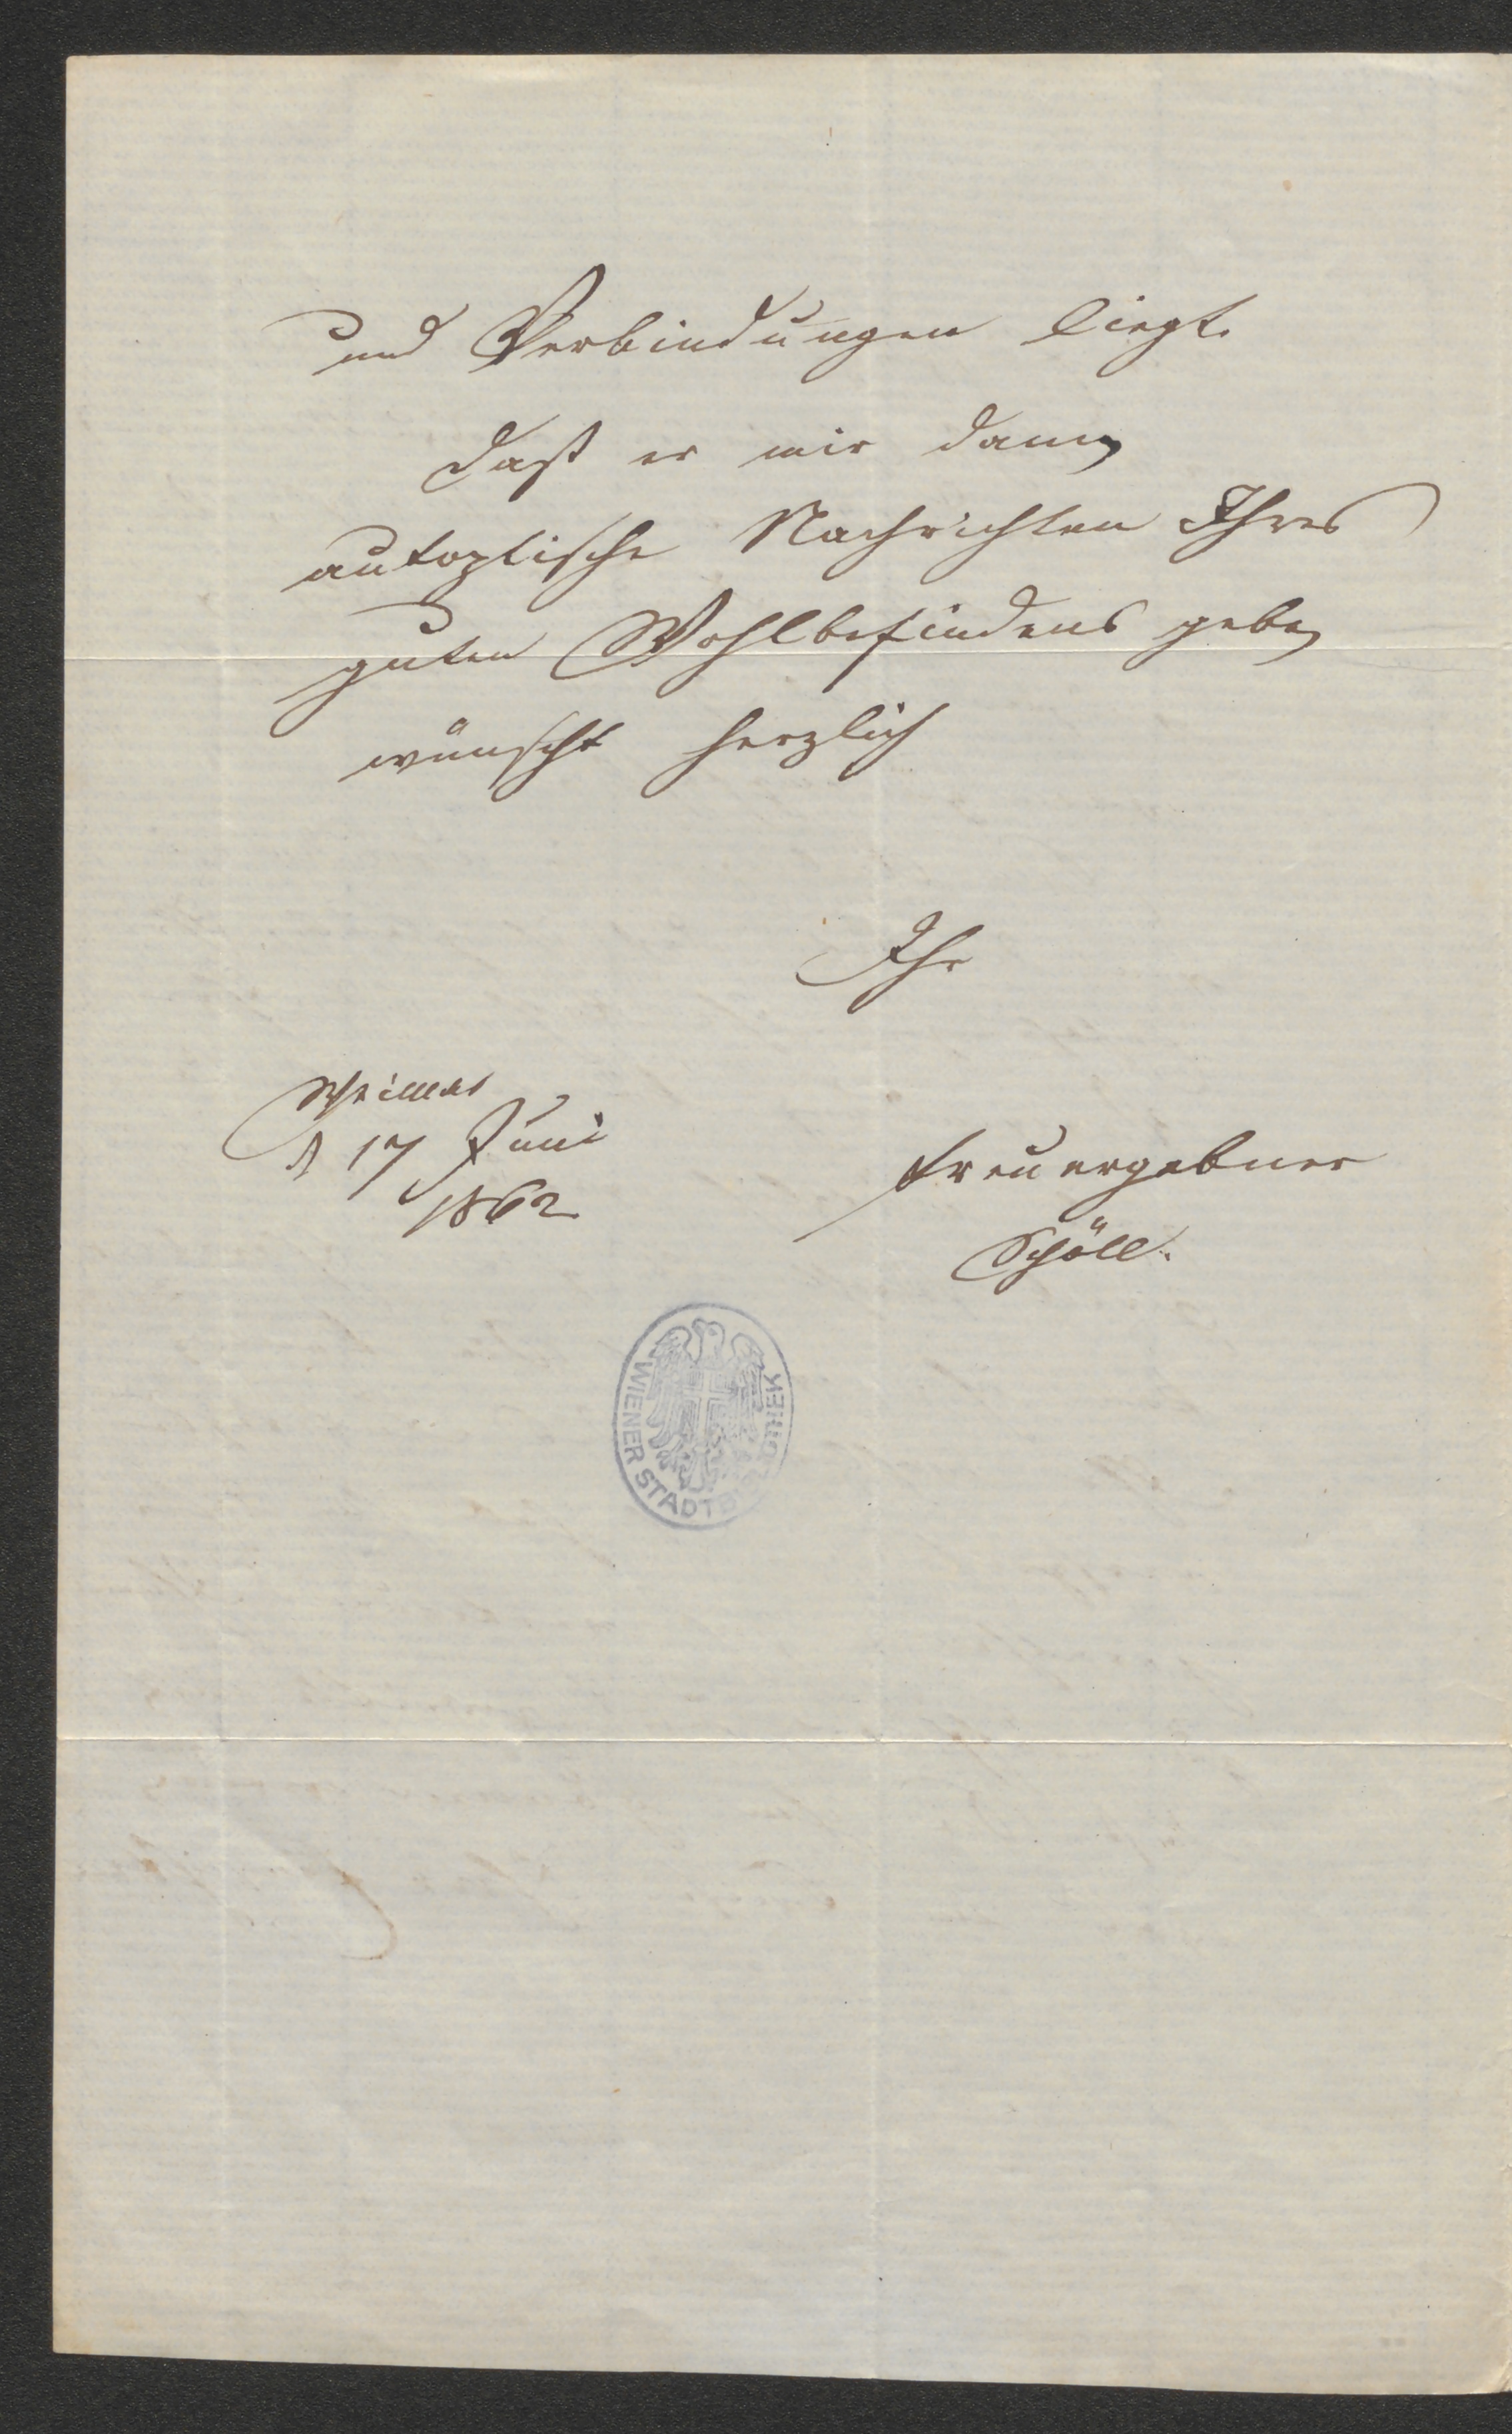 und Verbindungen liegt.
Daß er mir dann
autoptische Nachrichten Ihres
guten Wohlbefindens gebe,
wünscht herzlich
Ihr
Weimar
d 17 Juni
1862
treuergebner
Schöll.
WIENER STADTBIBLIOTHEK